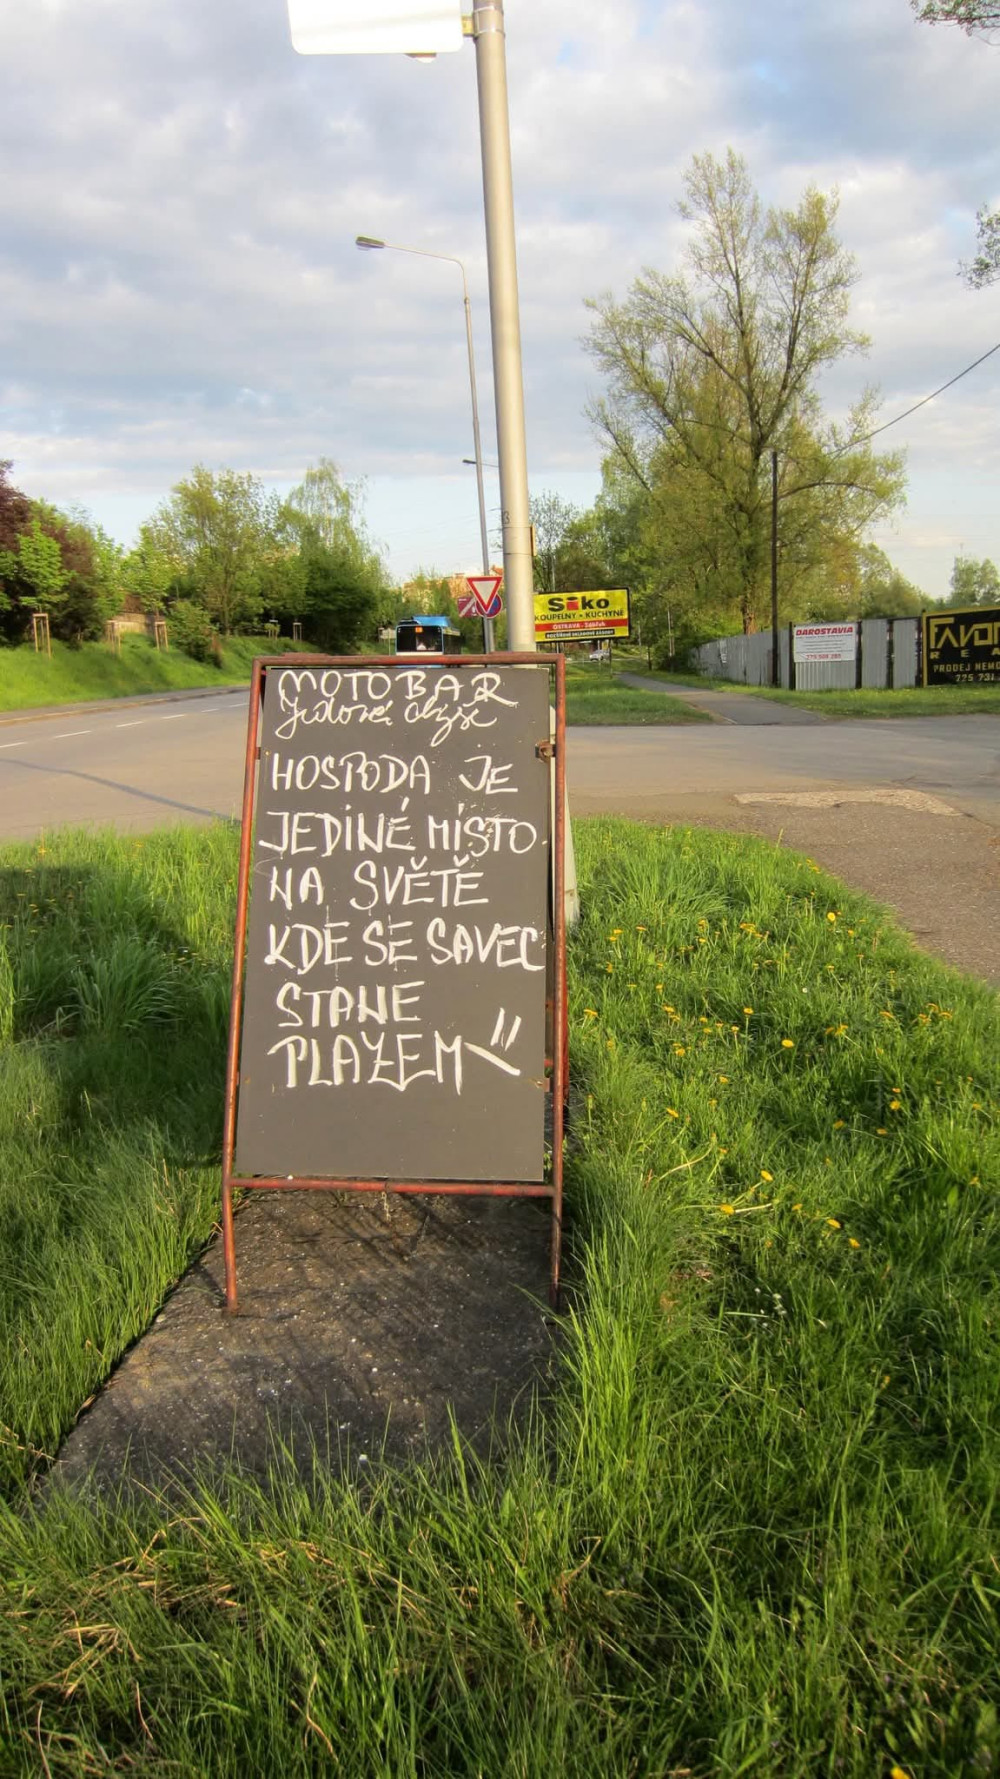 MOTOBAR
HOSPODA JE
JEDINÉ MÍSTO
NA SVĚTĚ
KDE SE SAVEC
STANE
PLAZEM "
Siko
KOUPELNY - KUCHYNĚ
DAROSTAVIA
FAVOR
PRODEJ NEMO